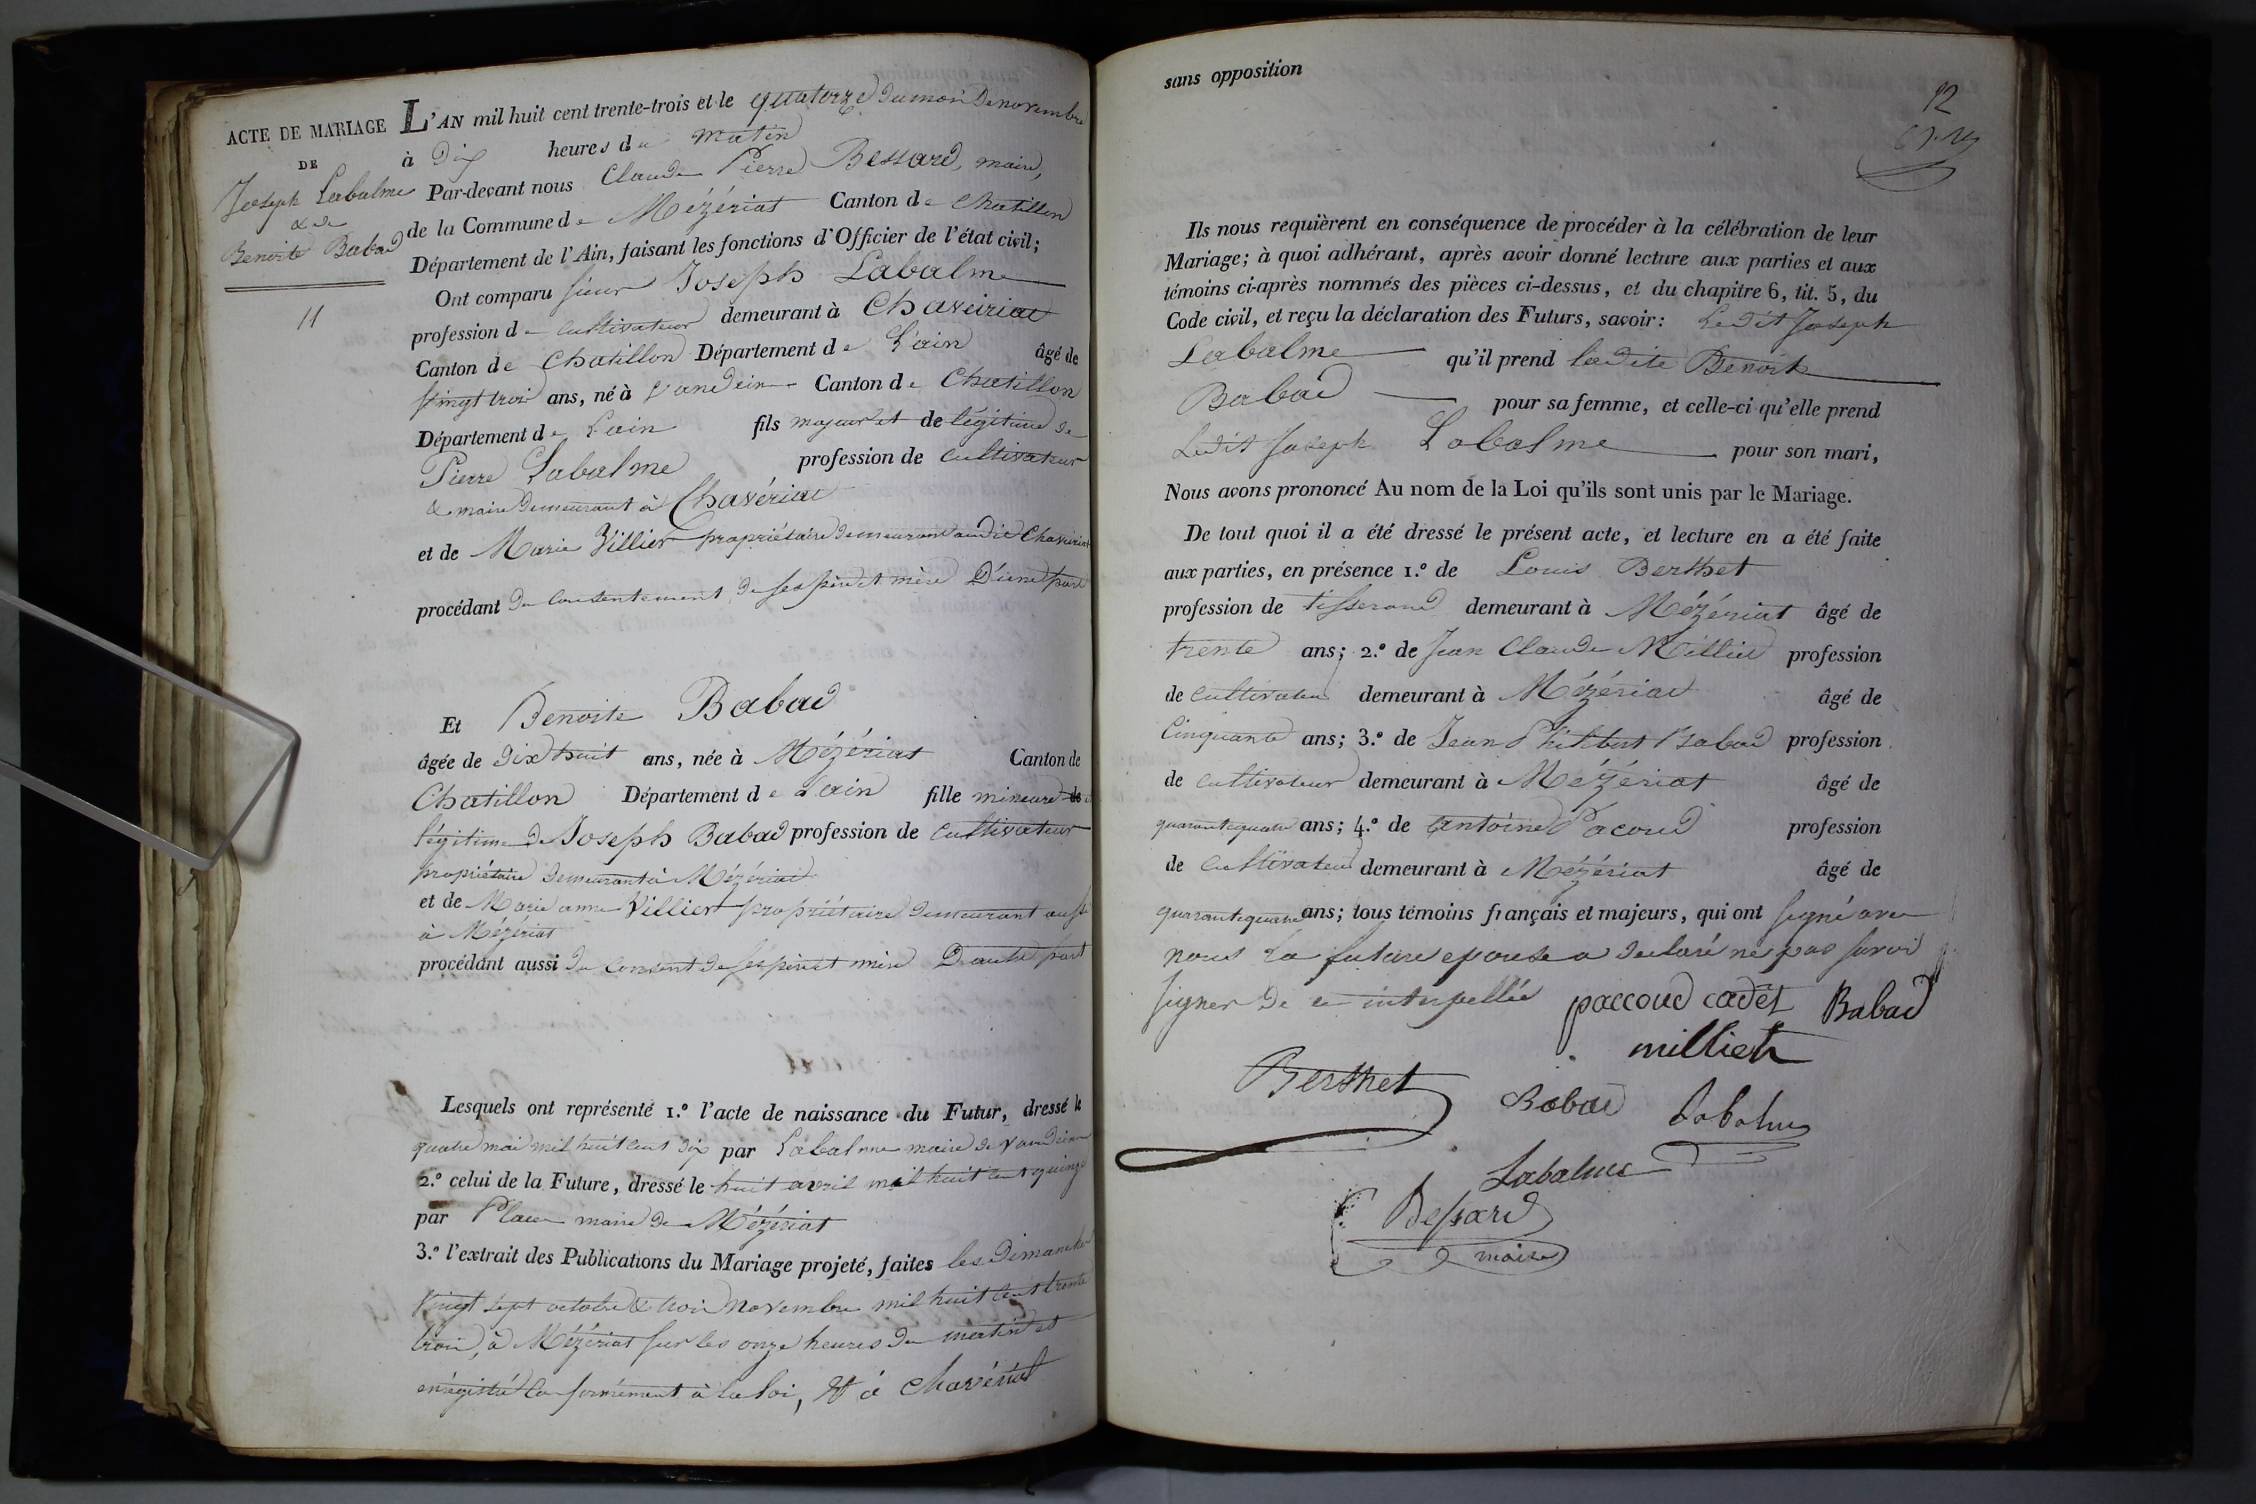 ACTE DE MARIAGE
DE
Joseph Labalme
& de
Benoite Babad
11
L'AN mil huit cent trente-trois et le quatorze du mois de novembre
à dix heures du matin
Par-devant nous Claude Pierre Bessard, maire,
de la Commune de Mézériat Canton de Chatillon
Département de l'Ain, faisant les fonctions d'Officier de l'état civil;
Ont comparu sieur Joseph Labalme
profession de cultivateur demeurant à Chaveiriat
Canton de Chatillon Département de L'ain âgé de
vingt trois ans, né à Vandein Canton de Chatillon
Département de L'ain fils majeur et de légitime de
Pierre Labalme profession de cultivateur
& maire demeurant à Chavériat
et de Marie Villier propriétaire demeurant audit Chaveiriat
procédant du consentement de ses père et mère D'une part
Et Benoite Babad
âgée de dix huit ans, née à Mézériat Canton de
Chatillon Département de l'ain fille mineure de
légitime de Joseph Babad profession de cultivateur
propriétaire demeurant à Mézériat
et de Marie anne Villier propriétaire demeurant aussi
à Mézériat
procédant aussi du consent de ses père et mère D'autre part
Lesquels ont représenté 1.º l'acte de naissance du Futur, dressé le
quatre mai mil huit cent dix par Labalme maire de Vandein
2.º celui de la Future, dressé le huit avril mil huit cent quinze
par Place maire de Mézériat
3.º l'extrait des Publications du Mariage projeté, faites les dimanches
vingt sept octobre & trois novembre mil huit cent trente
trois, à Mézériat sur les onze heures du matin et
enregistré conformément à la loi, & à Chavériat
sans opposition
12
Ils nous requièrent en conséquence de procéder à la célébration de leur
Mariage; à quoi adhérant, après avoir donné lecture aux parties et aux
témoins ci-après nommés des pièces ci-dessus, et du chapitre 6, tit. 5, du
Code civil, et reçu la déclaration des Futurs, savoir: Ledit Joseph
Labalme qu'il prend ladite Benoite
Babad pour sa femme, et celle-ci qu'elle prend
Ledit Joseph Labalme pour son mari,
Nous avons prononcé Au nom de la Loi qu'ils sont unis par le Mariage.
De tout quoi il a été dressé le présent acte, et lecture en a été faite
aux parties, en présence 1.º de Louis Berthet
profession de tisserand demeurant à Mézériat âgé de
trente ans; 2.º de Jean Claude Milliet profession
de cultivateur demeurant à Mézériat âgé de
Cinquante ans; 3.º de Jean Philibert Babad profession
de cultivateur demeurant à Mézériat âgé de
quarante quatre ans; 4.º de antoine Pacoud profession
de cultivateur demeurant à Mézériat âgé de
quarante quatre ans; tous témoins français et majeurs, qui ont signé avec
nous la future epouse a declaré ne pas savoir
signer de ce interpellée paccoud cadet Babad
milliet
Berthet Babad Labalme
Labalme
Bessard
maire